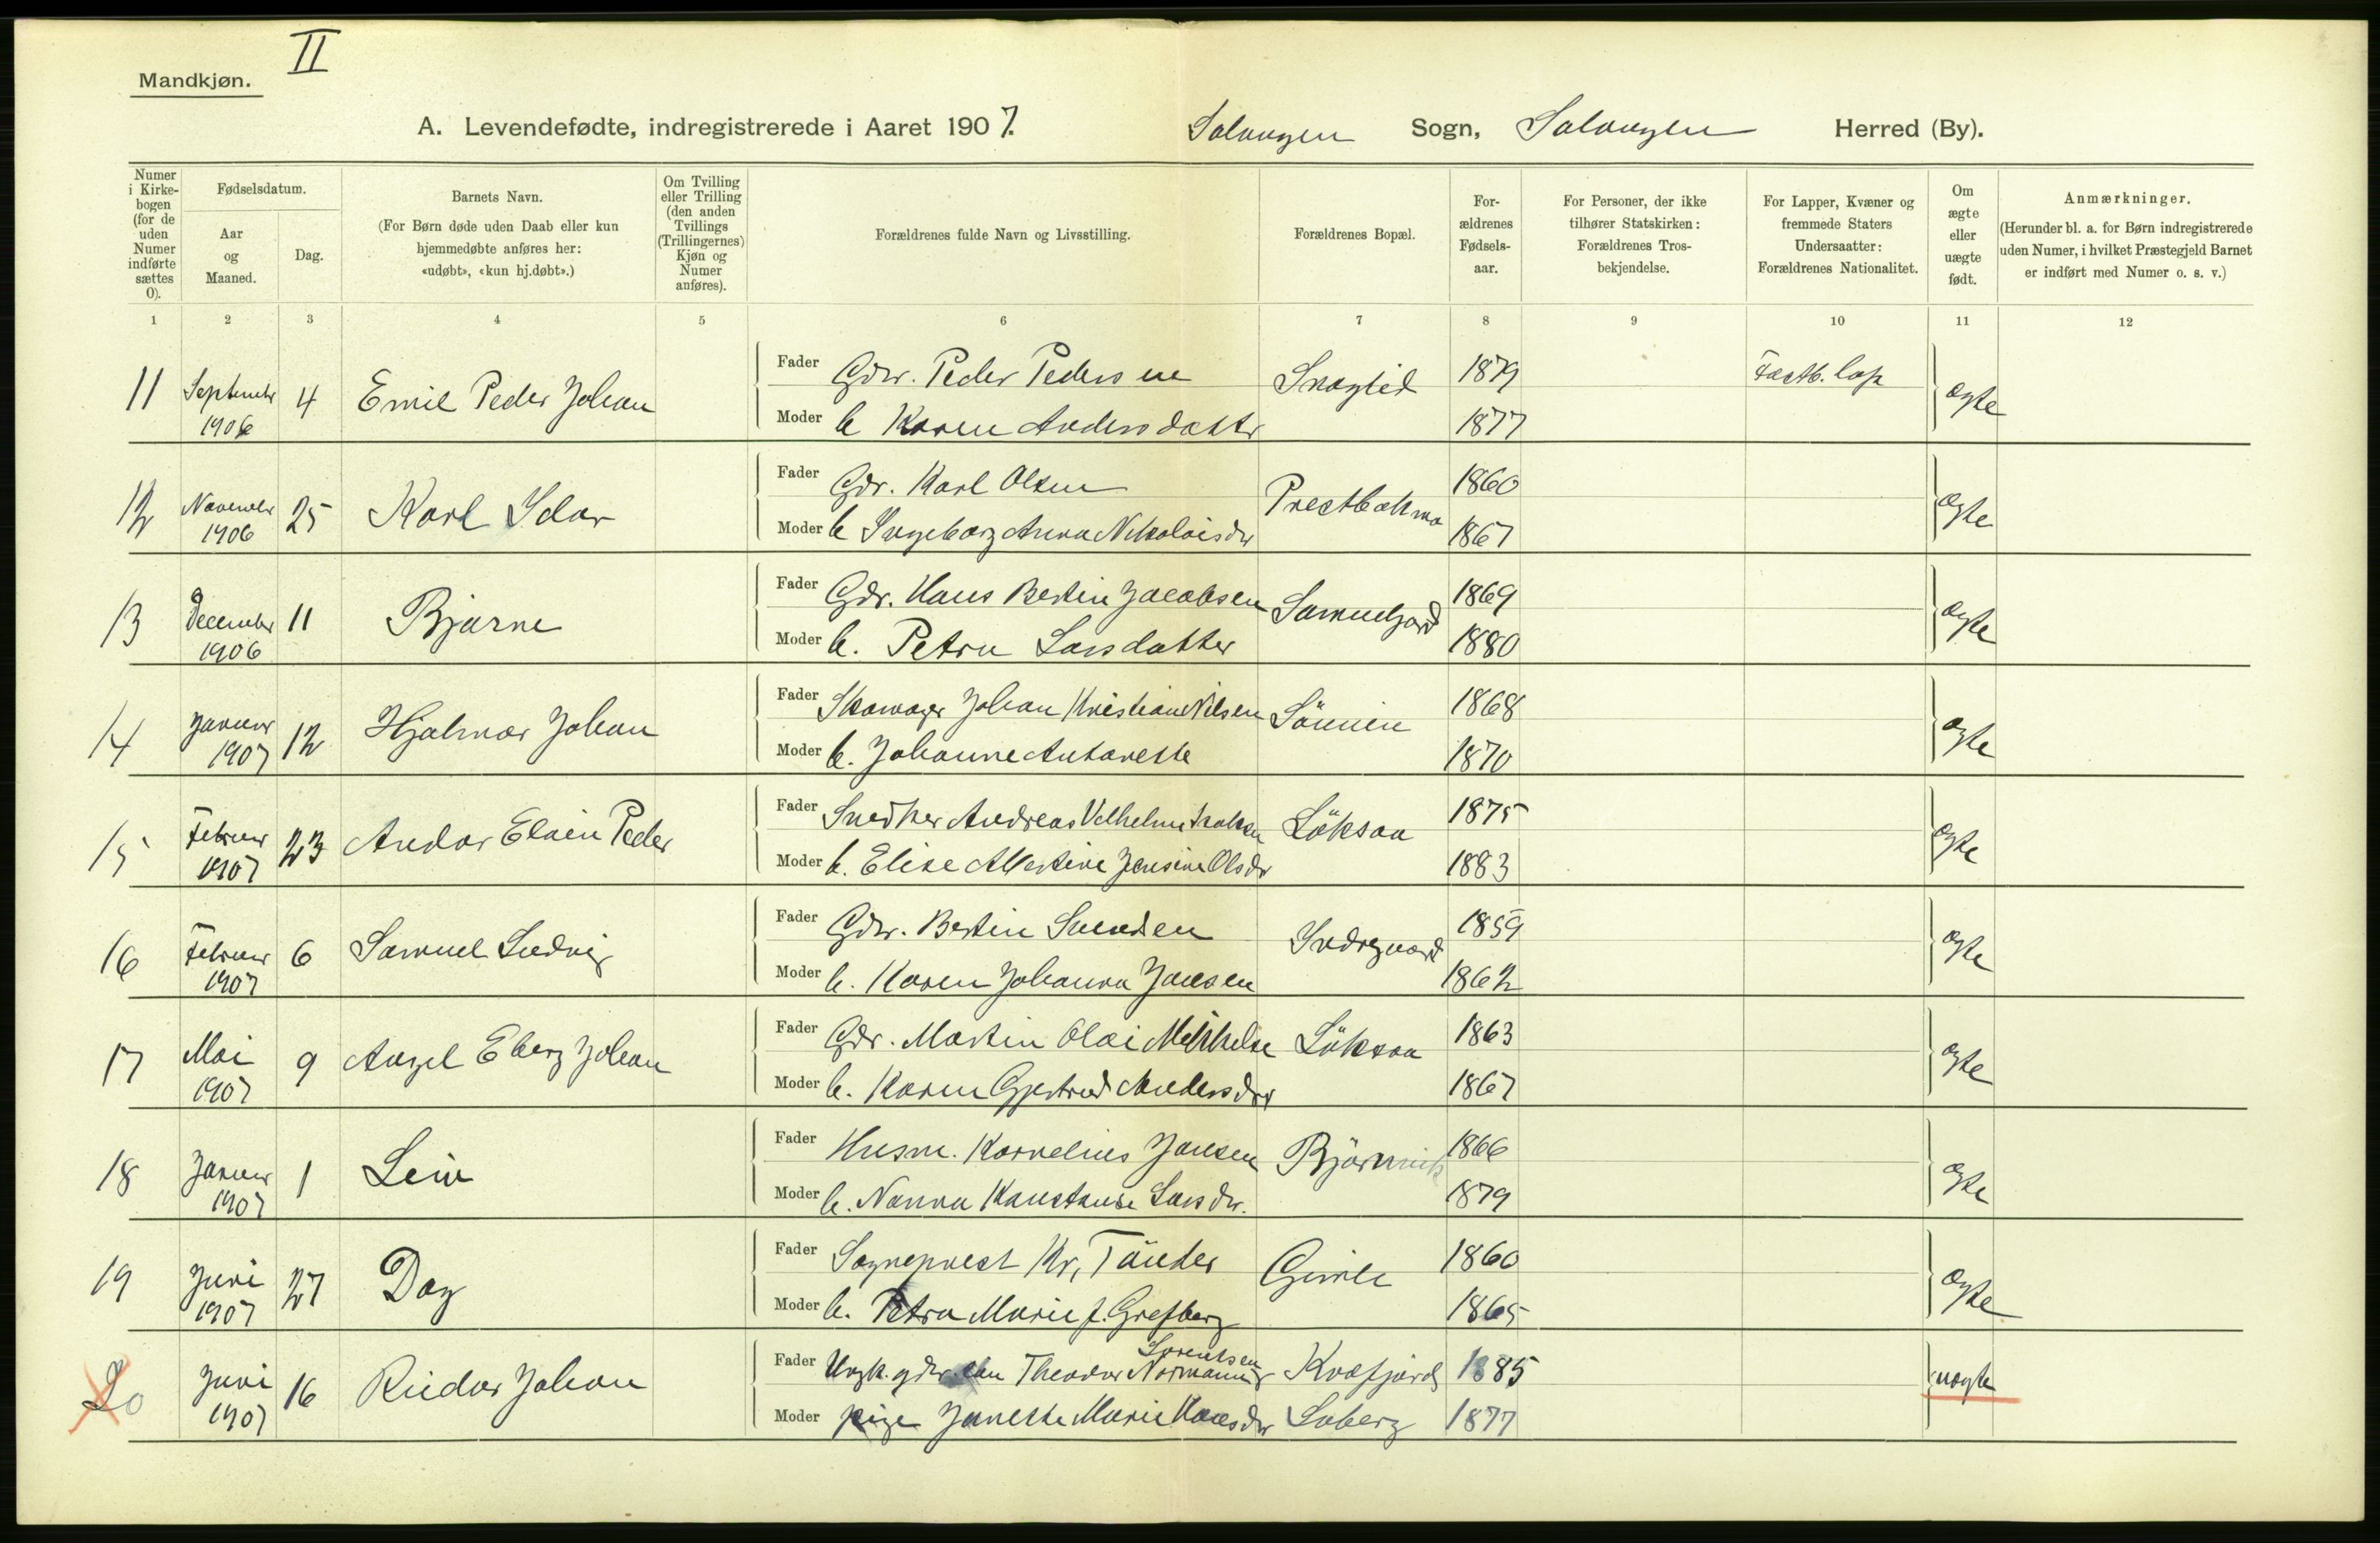 II
Mandkjøn.
A. Levendefødte, indregistrerede i Aaret 1907. Salangen Sogn, Salangen Herred (By).
Numer i Kirkebogen (for de uden Numer indførte sættes 0).
Fødselsdatum.
Aar og Maaned.
Dag.
Barnets Navn.
(For Børn døde uden Daab eller kun hjemmedøbte anføres her: «udøbt», «kun hj.døbt».)
Om Tvilling eller Trilling (den anden Tvillings (Trillingernes) Kjøn og Numer anføres).
Forældrenes fulde Navn og Livsstilling.
Forældrenes Bopæl.
Forældrenes Fødselsaar.
For Personer, der ikke tilhører Statskirken: Forældrenes Trosbekjendelse.
For Lapper, Kvæner og fremmede Staters Undersaatter: Forældrenes Nationalitet.
Om ægte eller uægte født.
Anmærkninger.
(Herunder bl. a. for Børn indregistrerede uden Numer, i hvilket Præstegjeld Barnet er indført med Numer o. s. v.)
1 2 3 4 5 6 7 8 9 10 11 12
11 September 1906 4 Emil Peder Johan
Fader Gdr. Peder Pedersen 1879 Fastb. lap
Moder h Karen Andersdatter 1877 ægte
12 November 1906 25 Karl Idar
Fader Gdr. Karl Olsen Prestbakmo 1860
Moder h Ingeborg Anna Nikolaisdr 1867 ægte
13 December 1906 11 Bjarne
Fader Gdr. Hans Bertin Jacobsen Samuelgård 1869
Moder h. Petra Larsdatter 1880 ægte
14 Januar 1907 12 Hjalmar Johan
Fader Skomager Johan Kristian Nilsen 1868
Moder h. Johanne Antonette 1870 ægte
15 Februar 1907 23 Andor Peder
Fader Snedker Andreas Vilhelm Löksaa 1875
Moder h. Elise Albertine Jensine Olsdr 1883 ægte
16 Februar 1907 6 Samuel Ludvig
Fader Gdr. Bertin Svendsen Indregaard 1859
Moder h. Karen Johanna Jansen 1862 ægte
17 Mai 1907 9 Eberg Johan
Fader Gdr. Martin Olai Mikkelse Löksaa 1863
Moder h. Karen Gjertrud Andersdtr 1867 ægte
18 Januar 1907 1 Leiv
Fader Husm. Kornelius Jansen 1866
Moder h. Nanna Konstanse Larsdr. 1879 ægte
19 Juni 1907 27 Dag
Fader Sogneprest Kr. Tönder Gimle 1860
Moder h. Petra Marie f. Grefberg 1865 ægte
20 Juni 1907 16 Reidar Johan
Fader Ungk. gdr. Theodor Normann Sørentsen Kvæfjord 1885
Moder pige Janette Marie Hansdr Laberg 1877 uægte